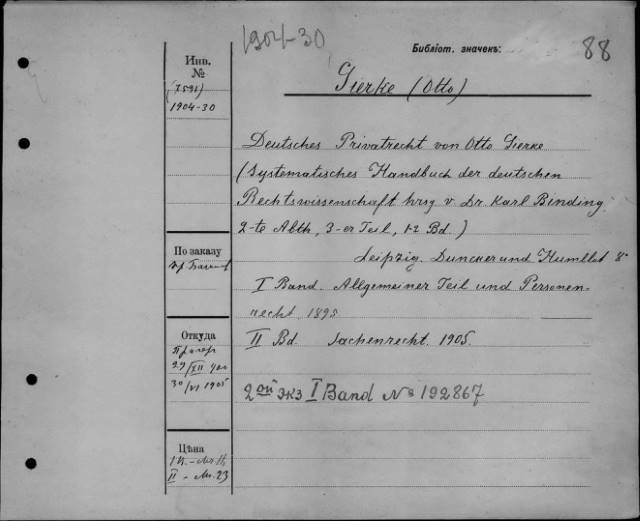 1904-30
Библіот. значекъ:
88
Инв.
№
(7591)
1904-30
Gierke (Otto)
Deutsches Privatrecht von Otto Gierke
(Systematisches Handbuch der deutschen
Rechtswissenschaft hrsg v. Dr. Karl Binding.
2-te Abth, 3-er Teil, 1-2 Bd.)
Leipzig. Duncker und Humblot 8°
I Band. Allgemeiner Teil und Personen-
recht 1895
II Bd. Sachenrecht. 1905.
2ой экз I Band № 192867
По заказу
Откуда
30/VI 1905
Цѣна
II – Мк. 23